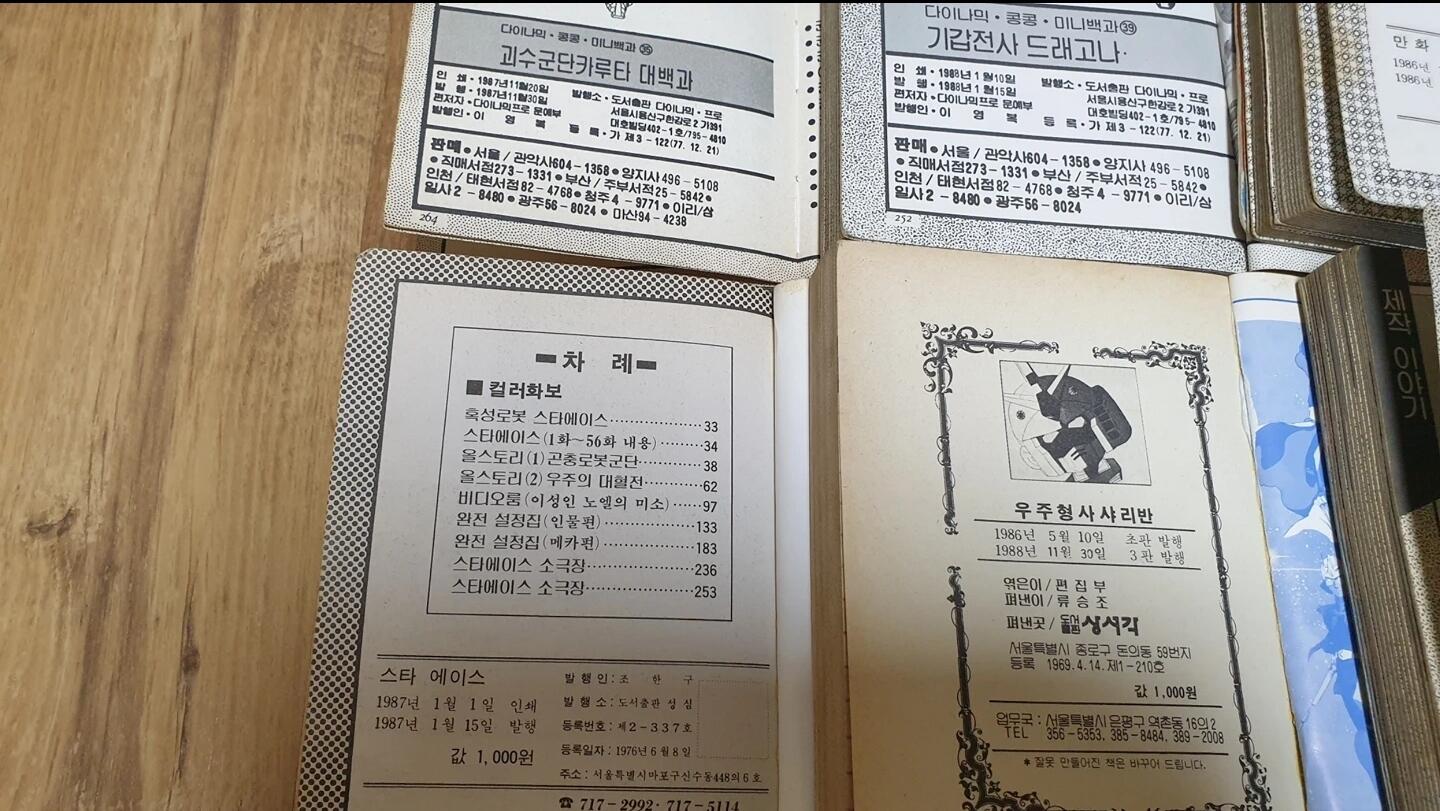 다이나믹・콩콩・미니백과 ㉟
괴수군단카루타 대백과
인 쇄・1987년11월20일
발 행・1987년11월30일
편저자・다이나믹프로 문예부
발행인・이 영 복
발행소・도서출판 다이나믹・프로
서울시용산구한강로 2 가391
대호빌딩402-1호/795-4810
등 록・가 제3-122(77. 12. 21)
판매●서울/관악사604-1358●양지사 496-5108
●직매서점273-1331●부산/주부서적25-5842●
인천/태현서점82-4768●청주4-9771●이리/삼
일사2-8480●광주56-8024●마산94-4238
264
다이나믹・콩콩・미니백과 ㊴
기갑전사 드래고나
인 쇄・1988년 1월10일
발 행・1988년 1월15일
편저자・다이나믹프로 문예부
발행인・이 영 복
발행소・도서출판 다이나믹・프로
서울시용산구한강로 2 가391
대호빌딩402-1호/795-4810
등 록・가 제3-122(77. 12. 21)
판매●서울/관악사604-1358●양지사 496-5108
●직매서점273-1331●부산/주부서적25-5842●
인천/태현서점82-4768●청주4-9771●이리/삼
일사2-8480●광주56-8024
252
만 화
1986년
1986년
차 례
■ 컬러화보
혹성로봇 스타에이스……………………33
스타에이스(1화~56화 내용)……………34
올스토리(1)곤충로봇군단………………38
올스토리(2)우주의 대혈전………………62
비디오룸(이성인 노엘의 미소)…………97
완전 설정집(인물편)……………………133
완전 설정집(메카편)……………………183
스타에이스 소극장………………………236
스타에이스 소극장………………………253
스타 에이스
1987년 1월 1일 인쇄
1987년 1월 15일 발행
값 1,000원
발 행 인 : 조 한 구
발 행 소 : 도서출판 성 심
등록번호 : 제2-337호
등록일자 : 1976년 6월 8일
주소 : 서울특별시마포구신수동448의 6 호
☎ 717-2992・717-5114
우주형사샤리반
1986년 5월 10일 초판 발행
1988년 11월 30일 3판 발행
엮은이/편 집 부
펴낸이/류 승 조
펴낸곳/도서출판 상서각
서울특별시 종로구 돈의동 59번지
등록 1969.4.14.제1-210호
값 1,000원
업무국 : 서울특별시 은평구 역촌동 16의 2
TEL 356-5353, 385-8484, 389-2008
* 잘못 만들어진 책은 바꾸어 드립니다.
제작 이야기